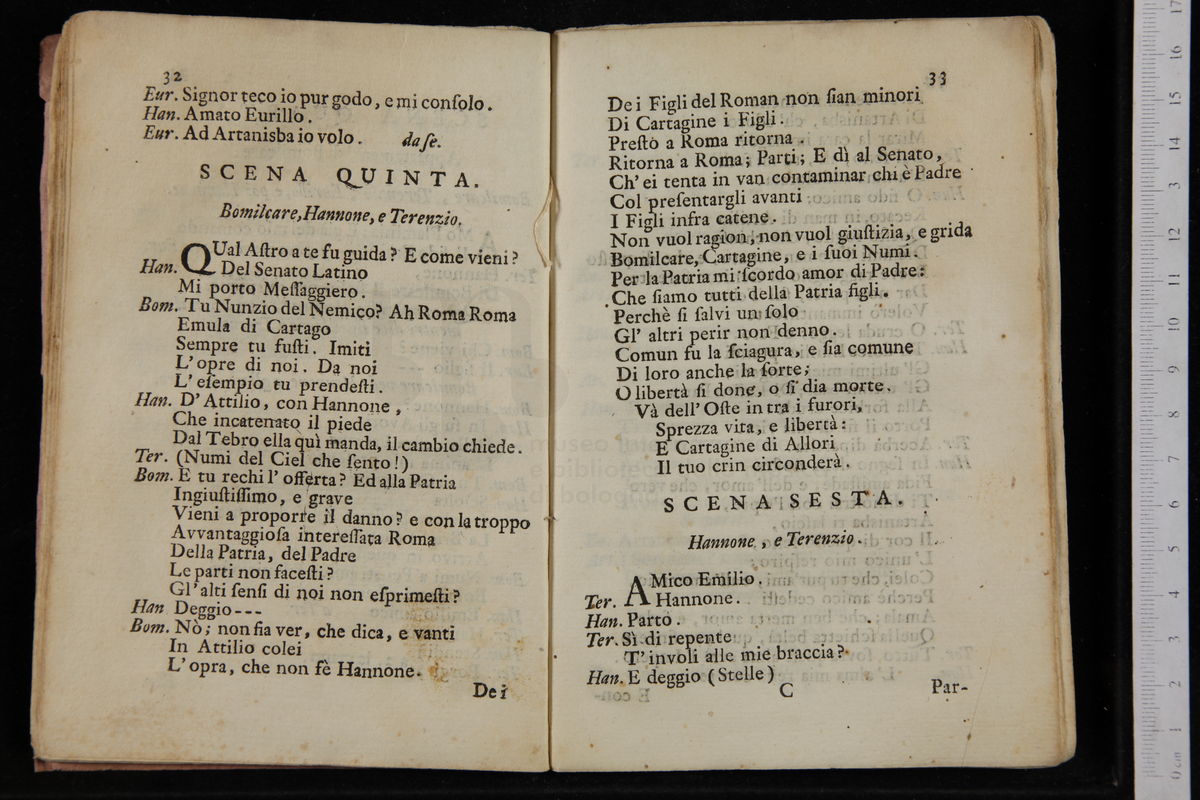 32
Eur. Signor teco io pur godo, e mi conſolo.
Han. Amato Eurillo.
Eur. Ad Artanisba io volo. da ſe.
SCENA QUINTA.
Bomilcare, Hannone, e Terenzio.
QUal Aſtro a te fu guida? E come vieni?
Han. Del Senato Latino
Mi porto Meſſaggiero.
Bom. Tu Nunzio del Nemico? Ah Roma Roma
Emula di Cartago
Sempre tu fuſti. Imiti
L'opre di noi. Da noi
L'eſempio tu prendeſti.
Han. D'Attilio, con Hannone,
Che incatenato il piede
Dal Tebro ella quì manda, il cambio chiede.
Ter. (Numi del Ciel che ſento!)
Bom. E tu rechi l'offerta? Ed alla Patria
Ingiuſtiſſimo, e grave
Vieni a proporre il danno? e con la troppo
Avvantaggioſa intereſſata Roma
Della Patria, del Padre
Le parti non faceſti?
Gl'alti ſenſi di noi non eſprimeſti?
Han Deggio---
Bom. Nò; non fia ver, che dica, e vanti
In Attilio colei
L'opra, che non fè Hannone.
Dei
33
Dei Figli del Roman non ſian minori
Di Cartagine i Figli.
Preſto a Roma ritorna.
Ritorna a Roma; Parti; E dì al Senato,
Ch'ei tenta in van contaminar chi è Padre
Col preſentargli avanti
I Figli infra catene.
Non vuol ragion, non vuol giuſtizia, e grida
Bomilcare, Cartagine, e i ſuoi Numi.
Per la Patria mi ſcordo amor di Padre:
Che ſiamo tutti della Patria figli.
Perchè ſi ſalvi un ſolo
Gl'altri perir non denno.
Comun fu la ſciagura, e ſia comune
Di loro anche la ſorte;
O libertà ſi done, o ſi dia morte.
Và dell'Oſte in tra i furori,
Sprezza vita, e libertà:
E Cartagine di Allori
Il tuo crin circonderà.
SCENA SESTA.
Hannone, e Terenzio.
AMico Emilio.
Ter. Hannone.
Han. Parto.
Ter. Sì di repente
T'involi alle mie braccia?
Han. E deggio (Stelle)
C Par-